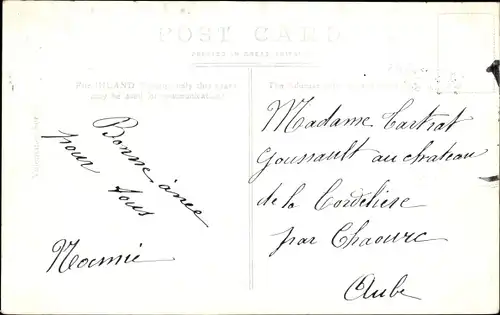 POST CARD
PRINTED IN GREAT BRITAIN
For INLAND Postage only this space
may be used for communication
Bonne anée
pour tous
Noémie
Madame Cartrat
Goussault au chateau
de la Cordeliere
par Chaource
Aube